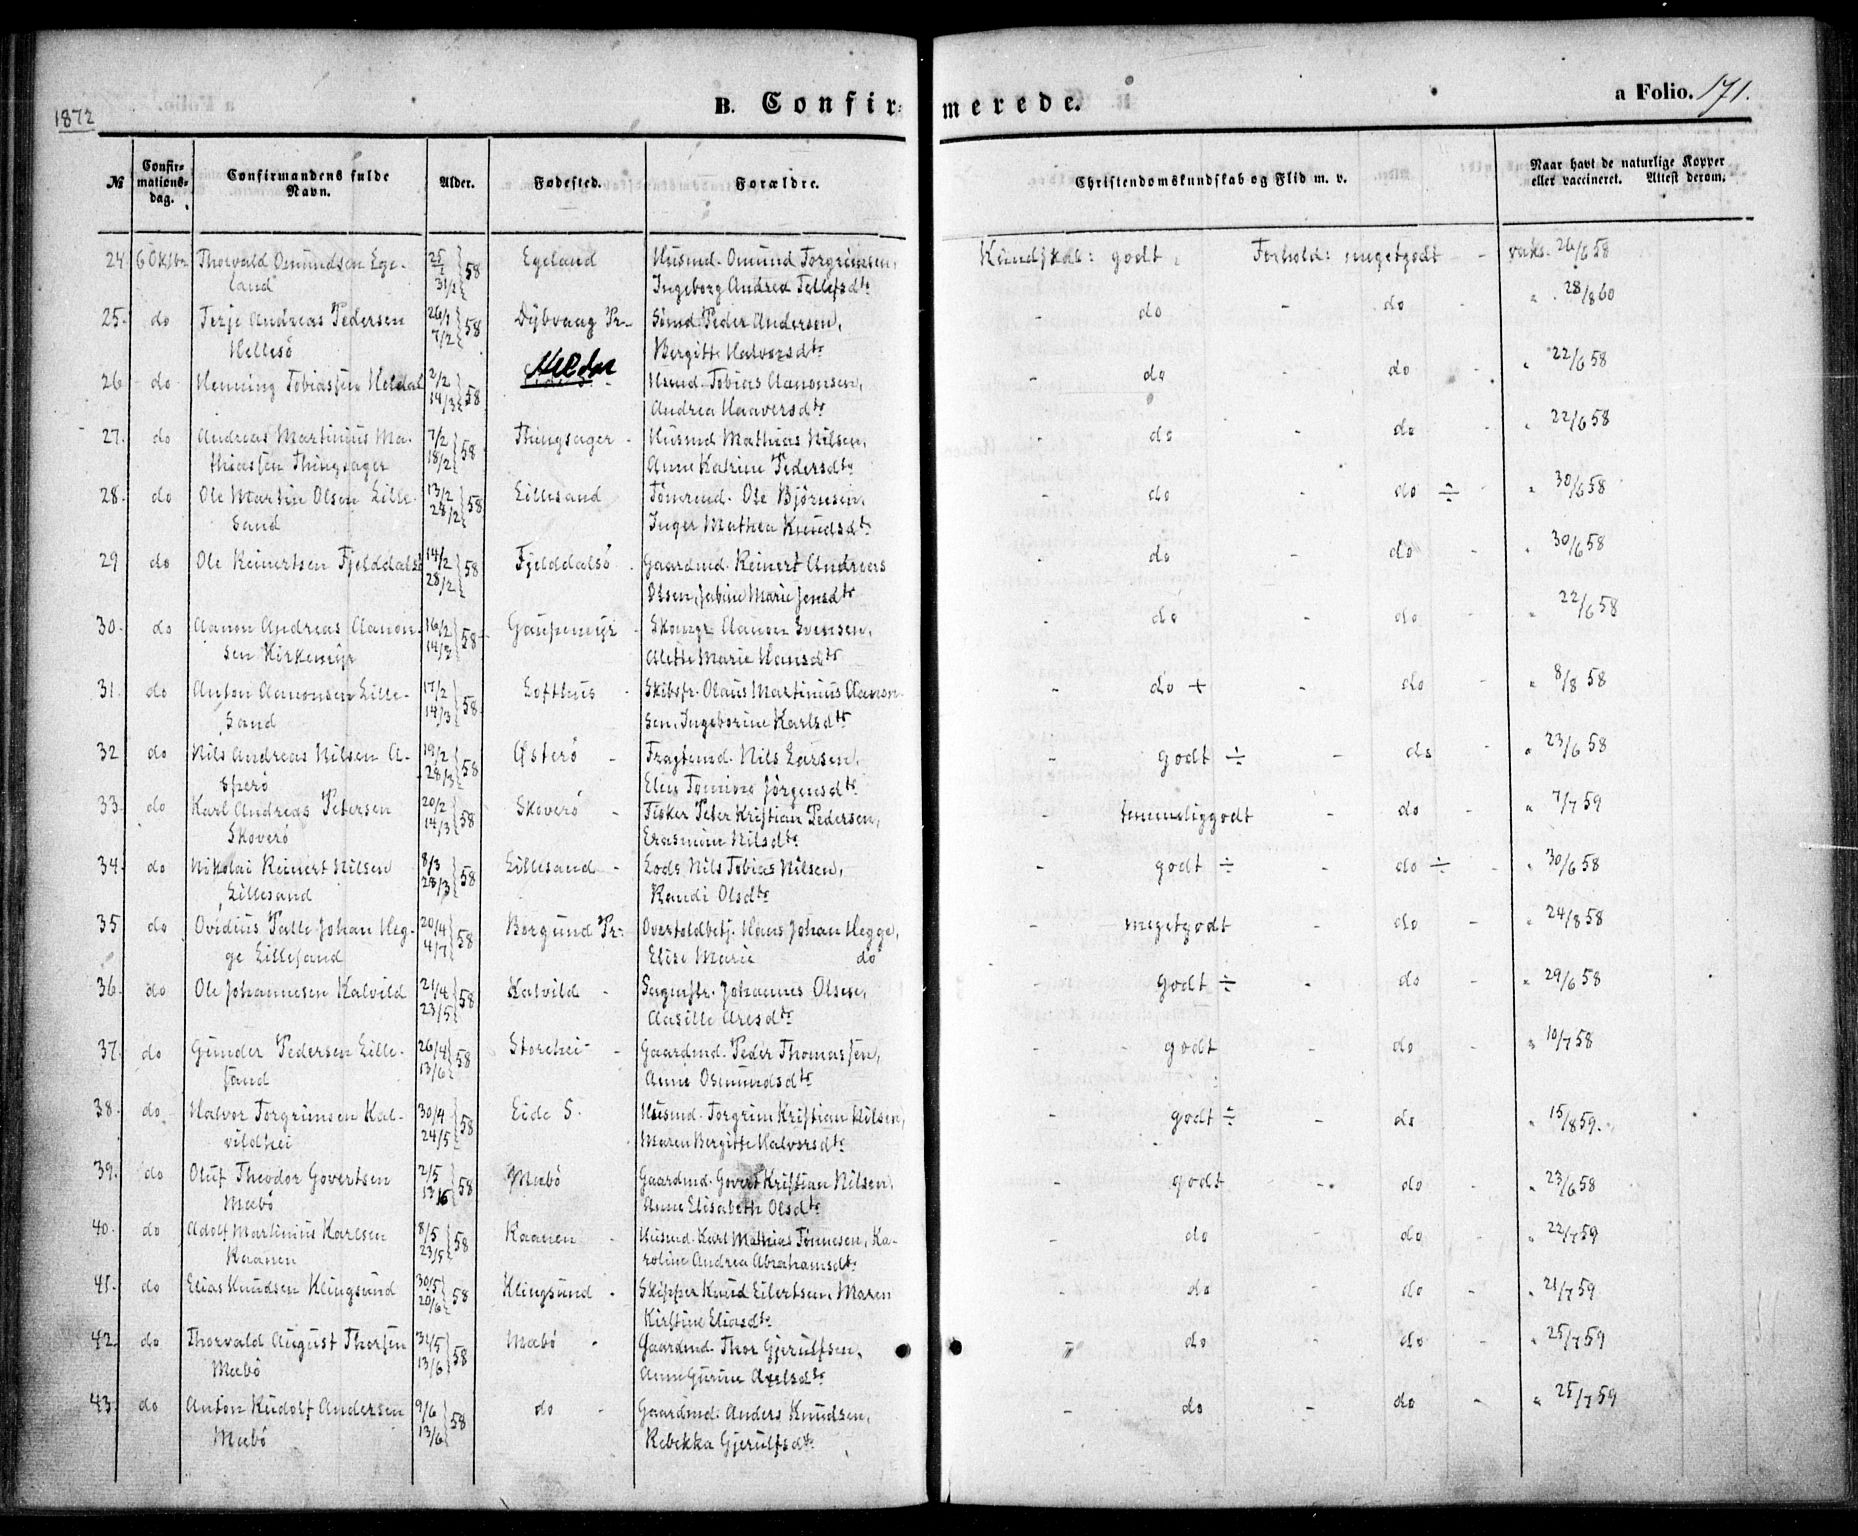 1872
B. Confirmerede.
a Folio. 171.
№ Confirmations-dag. Confirmandens fulde Navn. Alder. Fødested. Forældre. Christendomskundskab og Flid m. v. Naar havt de naturlige Kopper eller vaccineret. Attest derom.
24 6 Oktbr Thorvald Osmundsen Ege- 58 Egeland Husmd. Omund Torgrimsen, Kundskab: godt. Forhold: megetgodt - vaks. 26/6 58
land 31/2 Ingeborg Andrea Tellefsdtr
25. do Terje Andreas Pedersen 26/1 58 Dybvaag Pr. Sømd Peder Andersen, - do - do " 28/8 60
Hellesø 7/2 Bergitte Halvorsdtr
26 do Henning Tobiassen Heldal 2/2 58 Heldal Husmd. Tobias Aanonsen, - do - do - " 22/6 58
14/3 Andrea Haaversdtr
27. do Andreas Martinius Ma- 7/2 58 Thingsager - Husmd Mathias Nilsen, - do - do " 22/6 58
thiassen Thingsager 18/2 Anne Katrine Pedersdtr
28. do Ole Martin Olsen Lille- 13/2 58 Lillesand Tømrmd. Ole Bjørnsen, - do - do ÷ - " 30/6 58
sand 28/2 Inger Mathea Knudsdtr
29 do Ole Reinertsen Fjelddalsø 14/2 58 Fjelddalsø Gaardmd. Reinert Andreas - do - do - " 30/6 58
28/2 Olsen, Jabine Marie Jensdtr
30. do Aanon Andreas Aanon- 16/2 58 Gaupemyr - Skomgr Aanon Evensen, - do - do 22/6 58
sen Kirkemyr 14/3 Alette Marie Hansdtr
31. do Anton Aanonsen Lille- 17/2 58 Lofthus - Skibsfr. Olaus Martinius Aanon- - do + - do " 8/8 58
sand 14/3 sen, Ingeborine Karlsdtr
32 do Nils Andreas Nilsen A- 19/2 58 Østerø - Fragtemd. Nils Larsen, - godt ÷ - do - " 23/6 58
sperø 28/3 Elen Tomine Jørgensdtr
33. do Karl Andreas Petersen 20/2 58 Skoverø - Fisker Peter Kristian Pedersen, - temmeliggodt do - " 7/7 59
Skoverø 14/3 Erasmine Nilsdtr
34. do Nikolai Reinert Nilsen 8/3 58 Lillesand - Lods Nils Tobias Nilsen, - godt ÷ - do ÷ - " 30/6 58
Lillesand 28/3 Randi Olsdtr
35 do Ovidius Palle Johan Heg- 20/4 58 Borgund Pr. Overtoldbetj. Hans Johan Hegge, - megetgodt - do - " 24/8 58
ge Lillesand 4/7 Elise Marie do
36. do Ole Johannesen Kalvild 21/4 58 Kalvild - Johannes Olsen, - godt ÷ - do - " 29/6 58
23/5 Aasille Aresdtr
37. do Gunder Pedersen Lille- 26/4 58 Storehei - Gaardmd. Peder Thomassen, - godt - do - " 10/7 58
sand 13/6 Anne Osmundsdtr
38. do Halvor Torgrimsen Kal- 30/4 58 Eide S. Husmd. Torgrim Kristian Nilsen, - godt ÷ - do " 15/8 59.
vildhei 24/5 Maren Bergitte Halvorsdtr
39. do Oluf Theodor Govertsen 2/5 58 Mæbø Gaardmd. Govert Kristian Nilsen, - godt - do - " 23/6 58
Mæbø 13/6 Anne Elisabeth Olsdtr
40. do Adolf Martinius Karlsen 8/5 58 Kaanen - Husmd. Karl Mathias Tønnesen, Ka- - do - do - " 22/7 59
Kaanen 23/5 roline Andrea Abrahamsdtr
41. do Elias Knudsen Klingsund 30/5 58 Klingsund - Skipper Knud Eilertsen, Maren - do - do - " 21/7 59
20/6 Kirstine Eliasdtr
42. do Thorvald August Thorsen 31/5 58 Mæbø - Gaardmd. Thor Gjerulfsen, " do - do - " 25/7 59
Mæbø 13/6 Anne Gurine Axelsdtr
43. do Anton Rudolf Andersen 9/6 58 do - Gaardmd. Anders Knudsen, - do - do - " 25/7 59
Mæbø 13/6 Rebekka Gjerulfsdtr